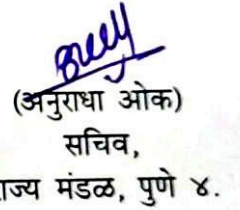 (अनुराधा ओक)
सचिव,
राज्य मंडळ, पुणे ४.